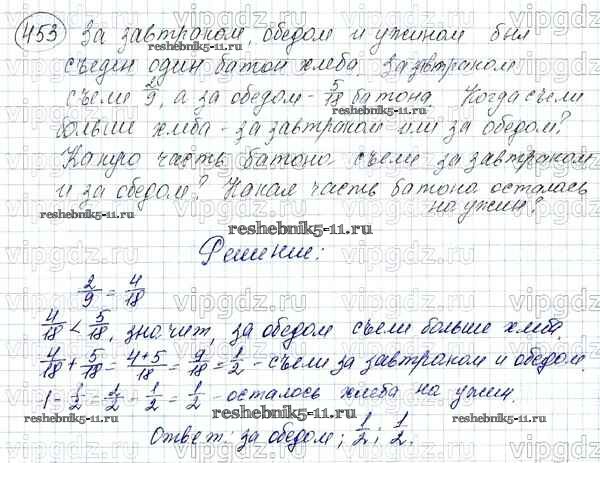 453 За завтраком, обедом и ужином был
съеден один батон хлеба. За завтраком
съели 2/9, а за обедом - 5/18 батона. Когда съели
больше хлеба - за завтраком или за обедом?
Какую часть батона съели за завтраком
и за обедом? Какая часть батона осталась
на ужин?
Решение:
2/9 = 4/18
4/18 < 5/18, значит, за обедом съели больше хлеба.
4/18 + 5/18 = 4+5/18 = 9/18 = 1/2 - съели за завтраком и обедом.
1 - 1/2 = 2/2 - 1/2 = 1/2 - осталось хлеба на ужин.
Ответ: за обедом; 1/2; 1/2.
vipgdz.ru
reshebnik5-11.ru